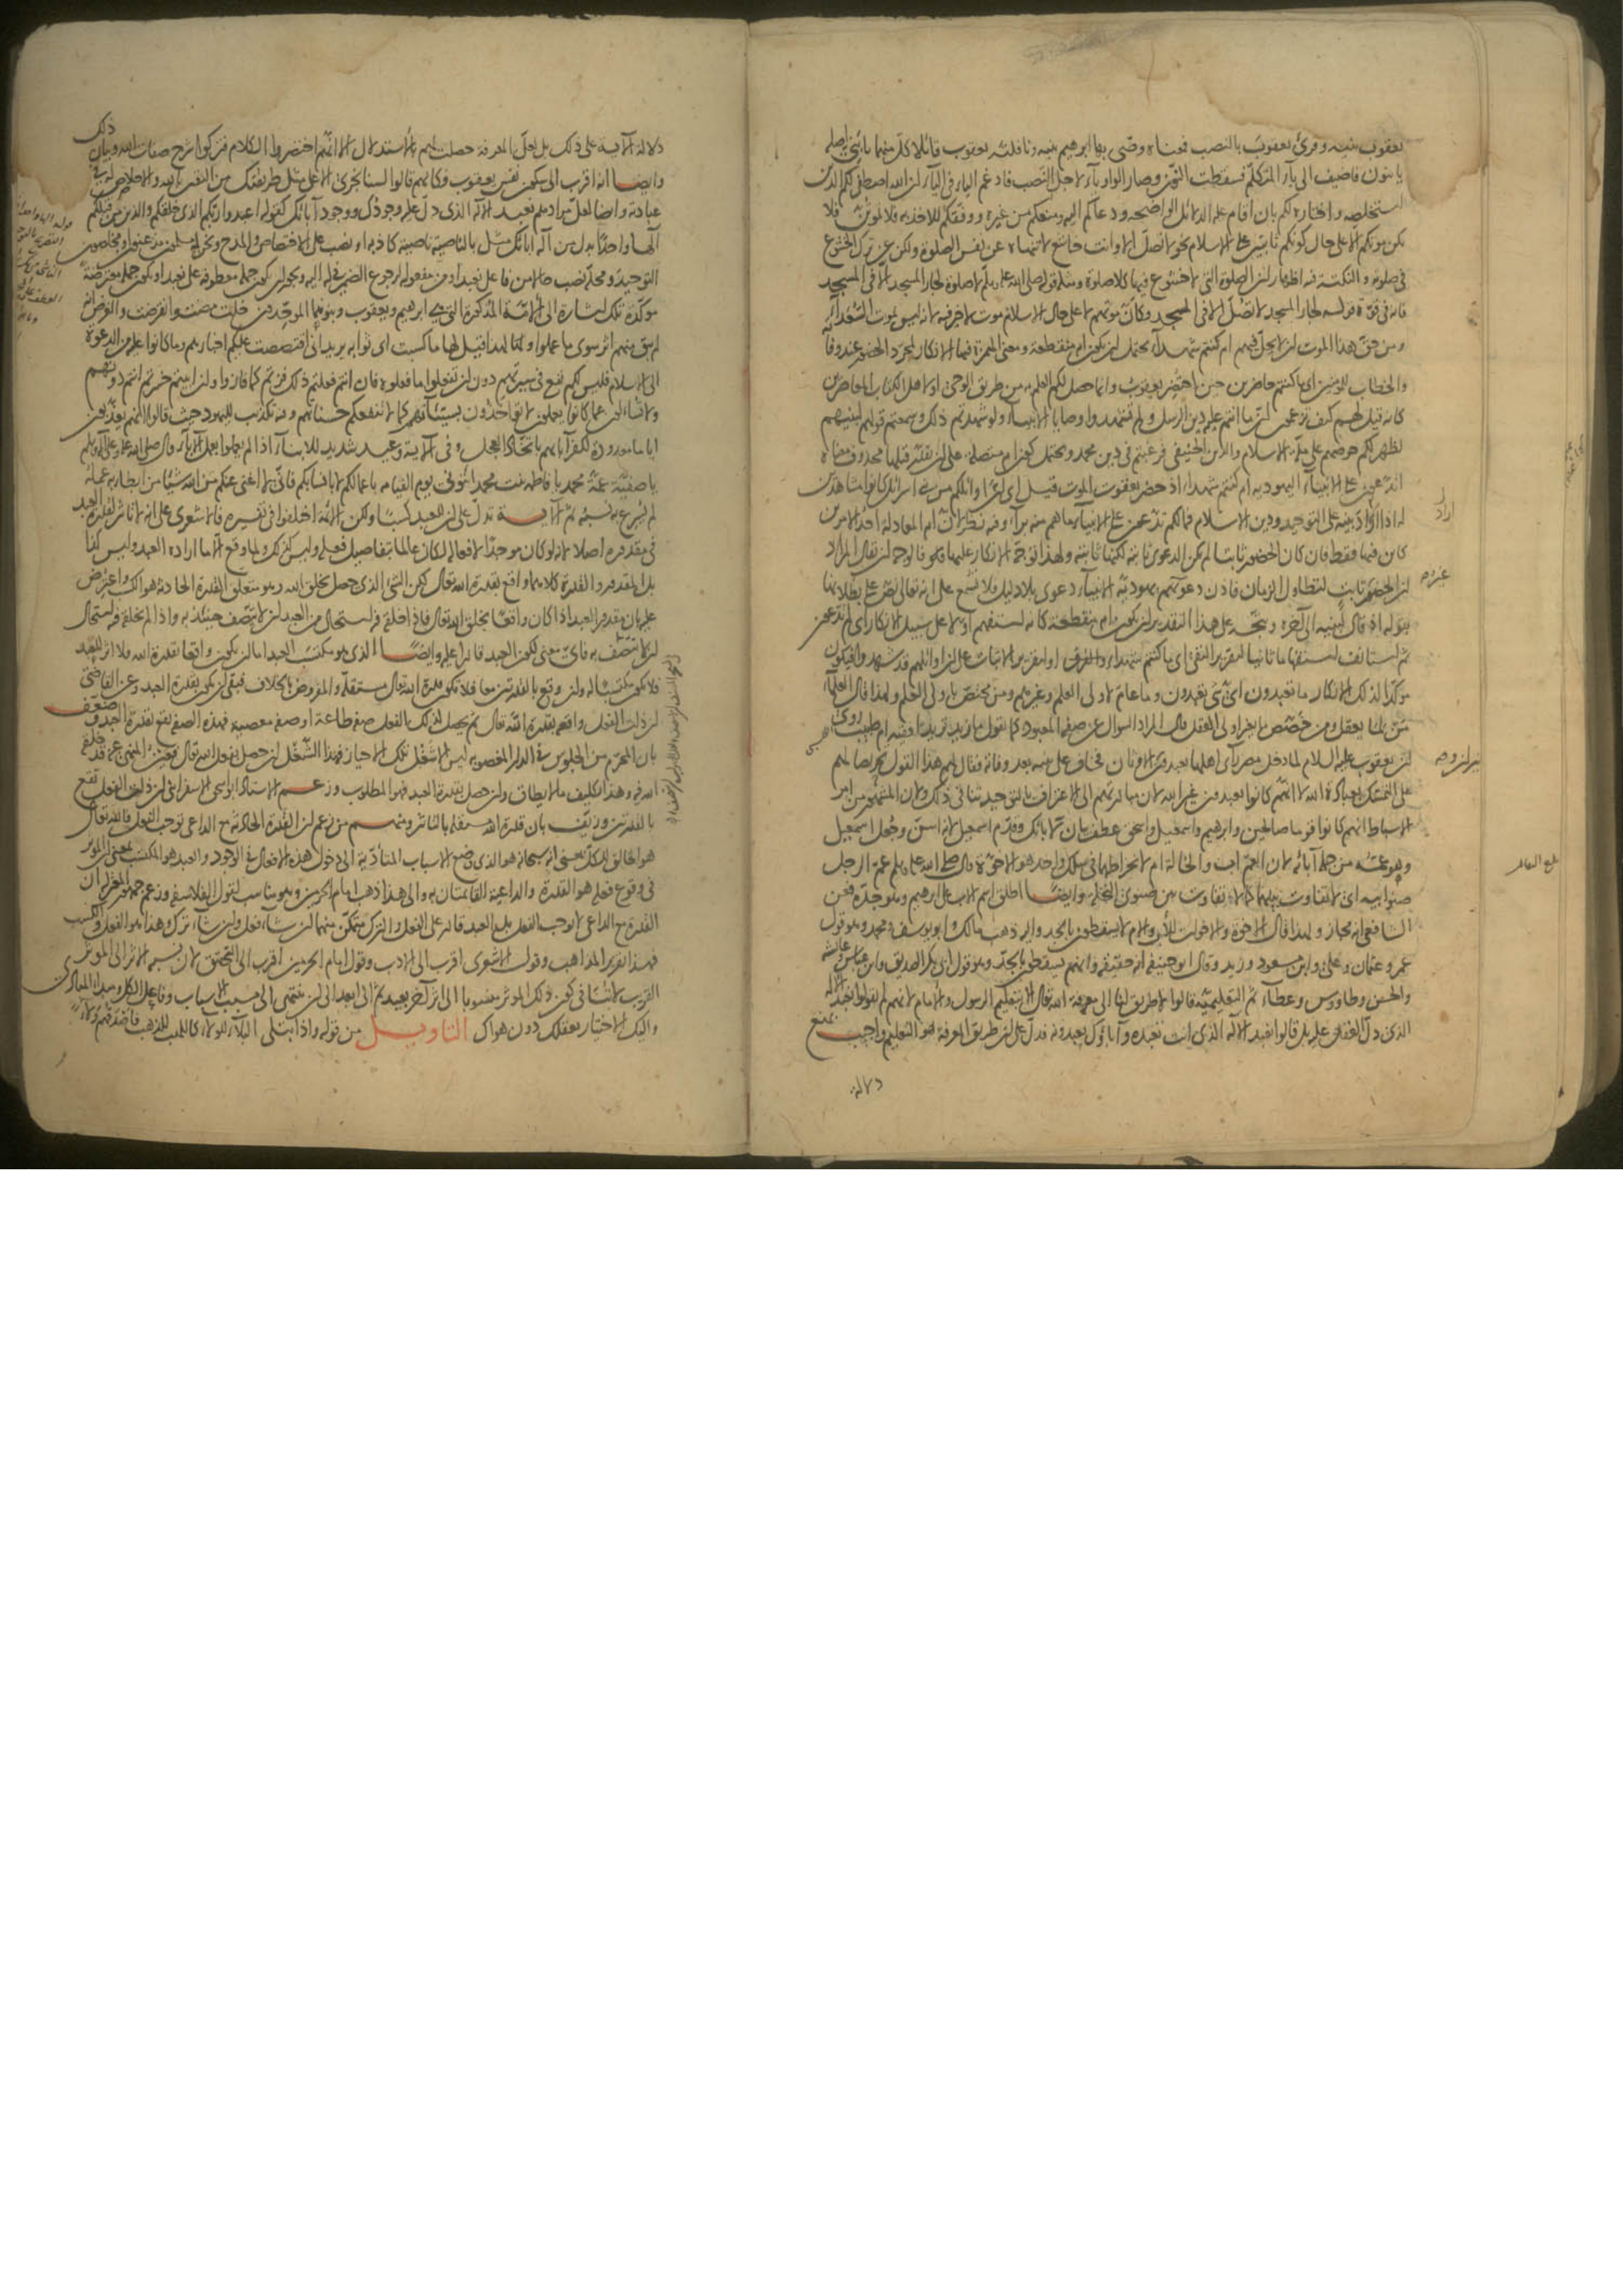 يعقوب بنيه وقرئ يعقوب بالنصب فمعناه وصّى بها ابرهيم بنيه ونافلته يعقوب قائلا كل منهما يا بني واصله
يا بنون فاضيف الى ياء المتكلم فسقطت النون وصار الواو ياء لاجل النصب فادغم الياء في الياء ان الله اصطفى لكم الدين
استخلصه واختاره لكم بان اقام عليه الدلائل الواضحة ودعاكم اليه ومنعكم من غيره ووفقكم للاخذ به فلا تموتن فلا
يكن موتكم الا على حال كونكم ثابتين على الاسلام نحو لا تصل الا وانت خاشع لا تنهاه عن نفس الصلوة ولكن عن ترك الخشوع
في صلوته والنكتة فيه اظهار ان الصلوة التي لا خشوع فيها كلا صلوة ومثله قوله صلى الله عليه وسلم لا صلوة لجار المسجد الا في المسجد
فانه في قوة قوله لجار المسجد لا تصل الا في المسجد وكان موتهم لا على حال الاسلام موت لا خير فيه لانه ليس بموت السعداء
ومن حق هذا الموت ان لا يحل فيهم ام كنتم شهداء يحتمل ان يكون ام منقطعة ومعنى الهمزة فيها الانكار لمجرد الحضور عند وفاته
والخطاب للمؤمنين اي ما كنتم حاضرين حين احتضر يعقوب وانما حصل لكم العلم به من طريق الوحي او لاهل الكتاب اما حاضرين
كانه قيل لهم كيف تزعمون ان ما انتم عليه دين الرسل ولم تشهدوا وصايا الانبياء ولو شهدتم ذلك وسمعتم قولهم لبنيهم
لظهر لكم حرصهم على ملة الاسلام والدين الحنيفي فرغبتم في دين محمد ويحتمل كون ام متصلة على ان يقدر قبلها محذوف معناه
اتدعون على الانبياء اليهودية ام كنتم شهداء اذ حضر يعقوب الموت قيل اي ان اوائلكم من بني اسرائيل كانوا مشاهدين
له اذ اراد بنيه على التوحيد ودين الاسلام فما لكم تدعون على الانبياء ما هم منه براء وفيه نظر لان ام المعادلة احد الامرين
كائن فيها فقط فان كان الحضور ثابتا لم يكن الدعوى ثابتة لكنها ثابتة ولهذا توجه الانكار عليها فالوجه ان يقال المراد
ان الحضور ثابت لتطاول الزمان فاذن دعوتهم يهودية الانبياء دعوى بلا دليل فلا تسمع على انه تعالى نص على بطلانها
بقوله اذ قال لبنيه الى آخره ويتجه على هذا التقدير ان يكون ام منقطعة كانه استفهم اولا على سبيل الانكار اي لم تدعون
ثم استأنف استفهاما ثانيا لتقرير النفي اي ما كنتم شهداء او لتقرير الاثبات على ان اوائلهم قد شهدوا فيكون
مؤكدا لذلك الانكار ما تعبدون اي شيء تعبدون وما عام لاولي العلم وغيرهم ومن مختص باولي العلم ولهذا قال العلماء
من لما يعقل ومن خصص ما بغير اولي العقل قال المراد السؤال عن صفة المعبود كما تقول ما زيد تريد افقيه ام طبيب روي
ان يعقوب عليه السلام لما دخل مصر رأى اهلها يعبدون الاوثان فخاف على بنيه بعد وفاته فقال لهم هذا القول تحريضا لهم
على التمسك بعبادة الله لا انهم كانوا يعبدون غير الله لان مبادرتهم الى الاعتراف بالتوحيد تنافي ذلك ولان المشهور من امر
الاسباط انهم كانوا قوما صالحين وابرهيم واسمعيل واسحق عطف بيان لآبائك وقدم اسمعيل لانه اسن وجعل اسمعيل
وهو عمه من جملة آبائه لان العم اب والخالة ام لانخراطهما في سلك واحد هو الاخوة قال صلى الله عليه وسلم عم الرجل
صنو ابيه اي لا تفاوت بينهما كما لا تفاوت بين صنوي النخلة وايضا اطلق اسم الاب على ابرهيم وهو جده فعن
الشافعي انه مجاز ولهذا قال الاخوة والاخوات للاب والام لا يسقطون بالجد واليه ذهب مالك وابو يوسف ومحمد وهو قول
عمر وعثمان وعلي وابن مسعود وزيد وقال ابو حنيفة انه حقيقة وانهم يسقطون بالجد وهو قول ابي بكر الصديق وابن عباس وعائشة
والحسن وطاوس وعطاء ثم التعليمية قالوا لا طريق لنا الى معرفة الله تعالى الا بتعليم الرسول والامام لانهم لم يقولوا نعبد الاله
الذي دل العقل عليه بل قالوا نعبد الاله الذي انت تعبده وآباؤك يعبدونه فدل على ان طريق المعرفة هو التعليم واجيب بمنع
دلالة
اراد
بلغ
دلالة الآية على ذلك بل لعل المعرفة حصلت لهم بالاستدلال الا انهم اختصروا الكلام فتركوا شرح صفات الله وبيان ذلك
وايضا انه اقرب الى سكون نفس يعقوب وكانهم قالوا لسنا نجري الا على مثل طريقتك من اليقين بالله والاخلاص له في
عبادته وايضا لعل مرادهم نعبد الاله الذي دل عليه وجودك ووجود آبائك كقوله اعبدوا ربكم الذي خلقكم والذين من قبلكم
الها واحدا بدل من اله آبائك مثل بالناصية ناصية كاذبة او نصب على الاختصاص والمدح ونحن له مسلمون مذعنون او مخلصون
التوحيد ومحله نصب حالا من فاعل نعبد او من مفعوله لرجوع الضمير في له اليه ويجوز ان يكون جملة معطوفة على نعبد او يكون جملة معترضة
مؤكدة تلك اشارة الى الامة المذكورة التي هي ابرهيم ويعقوب وبنوهما الموحدون خلت مضت وانقرضت والغرض انه
لم يبق منهم اثر سوى ما عملوا وكما لهذا قيل لها ما كسبت اي ثوابه يريد اني اقتصصت عليكم اخبارهم وما كانوا عليه من الدعوة
الى الاسلام فليس لكم نفع في سيرتهم دون ان تفعلوا ما فعلوه فان انتم فعلتم ذلك فزتم كما فازوا وان ابيتم خسرتم انتم دونهم
ولا تسألون عما كانوا يعملون لا تؤاخذون بسيئاتهم كما لا تنفعكم حسناتهم وفيه تكذيب لليهود حيث قالوا انهم يعذبون
اياما معدودة لكفر آبائهم باتخاذ العجل وفي الآية وعيد شديد للابناء اذا لم يعملوا بعمل الآباء قال صلى الله عليه وعلى آله وسلم
يا صفية عمة محمد يا فاطمة بنت محمد ائتوني يوم القيامة باعمالكم لا بانسابكم فاني لا اغني عنكم من الله شيئا من ابطأ به عمله
لم يسرع به نسبه ثم الآية تدل على ان للعبد كسبا ولكن الائمة اختلفوا في تفسيره فالاشعري على انه لا تأثير لقدرة العبد
في مقدوره اصلا لانه لو كان موجدا لافعاله لكان عالما بتفاصيل فعله وليس كذلك ولما وقع الا ما اراده العبد وليس كذا
بل المقدور والقدرة كلاهما واقع بقدرة الله تعالى لكن الشيء الذي حصل بخلق الله وهو متعلق القدرة الحادثة هو الكسب واعترض
عليه بان مقدور العبد اذا كان واقعا بخلق الله تعالى فاذا خلقه فيه استحال من العبد ان لا يتصف حينئذ به واذا لم يخلقه فيه استحال
ان يتصف به فاي معنى لكون العبد قادرا عليه وايضا الذي هو مكتسب العبد اما ان يكون واقعا بقدرة الله فلا اثر للعبد
فلا يكون مكتسبا له وان وقع بالقدرتين معا فلا تكون قدرة الله تعالى مستقلة والمفروض بخلاف فبقي ان يكون بقدرة العبد وعن القاضي
ان ذات الفعل واقعة بقدرة الله تعالى ثم يحصل لذلك الفعل صفة طاعة او صفة معصية فهذه الصفة تقع بقدرة العبد وضعف
بان المحرم من الجلوس في الدار المغصوبة ليس الا شغل تلك الاحياز فهذا الشغل ان حصل بفعل الله تعالى فعين المنهي عنه قد خلقه
الله فيه وهذا تكليف ما لا يطاق وان حصل بقدرة العبد فهو المطلوب وزعم الاستاذ ابو اسحق الاسفرايني ان ذات الفعل تقع
بالقدرتين وزيف بان قدرة الله مستقلة بالتأثير ومنهم من زعم ان القدرة الحادثة مع الداعي توجب الفعل فالله تعالى
هو الخالق للكل بمعنى انه سبحانه هو الذي وضع الاسباب المتأدية الى دخول هذه الافعال في الوجود والعبد هو المكتسب بمعنى المؤثر
في وقوع فعله هو القدرة والداعية القائمتان به والى هذا ذهب امام الحرمين وهو مناسب لقول الفلاسفة وزعم جمهور المعتزلة ان
القدرة مع الداعي لا توجب الفعل بل العبد قادر على الفعل والترك متمكن منهما ان شاء فعل وان شاء ترك وهذا هو الفعل والكسب
فهذا تقرير المذاهب وقول الاشعري اقرب الى الادب وقول امام الحرمين اقرب الى التحقيق لان نسبة الاثر الى المؤثر
القريب لا تنافي كون ذلك المؤثر منسوبا الى اثر آخر بعيد ثم الى ابعد الى ان ينتهي الى مسبب الاسباب وفاعل الكل ومبدأ المبادئ
واليك الاختيار بعقلك دون هواك التاويل من قوله واذا ابتلى البلاء للولاء كاللهب للذهب فاصدقهم ولاء